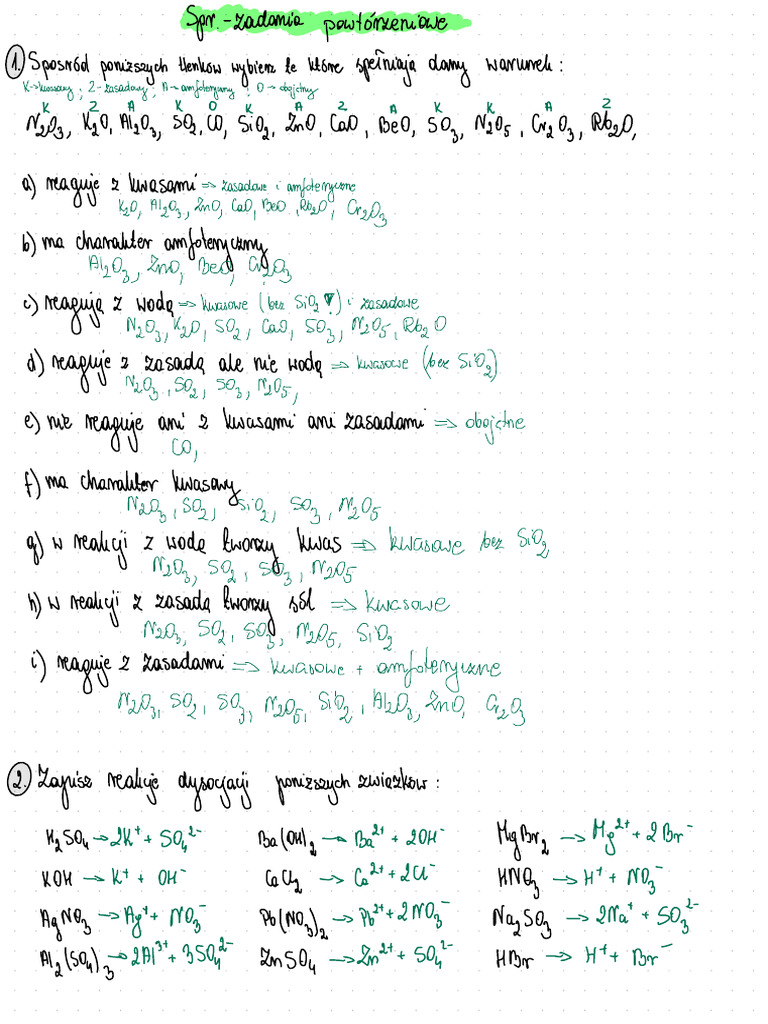 Spr. - zadania powtórzeniowe
1. Spośród poniższych tlenków wybierz te które spełniają dany warunek:
K→kwasowy; Z-zasadowy; A→amfoteryczny; O→obojętny
K Z A K O K A Z A K K A Z
N₂O₃, K₂O, Al₂O₃, SO₂, CO, SiO₂, ZnO, CaO, BeO, SO₃, N₂O₅, Cr₂O₃, Rb₂O,
a) reaguje z kwasami ⇒ zasadowe i amfoteryczne
K₂O, Al₂O₃, ZnO, CaO, BeO, Rb₂O, Cr₂O₃
b) ma charakter amfoteryczny
Al₂O₃, ZnO, BeO, Cr₂O₃
c) reagują z wodą ⇒ kwasowe (bez SiO₂ !) i zasadowe
N₂O₃, K₂O, SO₂, CaO, SO₃, N₂O₅, Rb₂O
d) reaguje z zasadą ale nie wodą ⇒ kwasowe (bez SiO₂)
N₂O₃, SO₂, SO₃, N₂O₅,
e) nie reaguje ani z kwasami ani zasadami ⇒ obojętne
CO,
f) ma charakter kwasowy
N₂O₃, SO₂, SiO₂, SO₃, N₂O₅
g) w reakcji z wodą tworzy kwas ⇒ kwasowe bez SiO₂
N₂O₃, SO₂, SO₃, N₂O₅
h) w reakcji z zasadą tworzy sól ⇒ kwasowe
N₂O₃, SO₂, SO₃, N₂O₅, SiO₂
i) reaguje z zasadami ⇒ kwasowe + amfoteryczne
N₂O₃, SO₂, SO₃, N₂O₅, SiO₂, Al₂O₃, ZnO, Cr₂O₃
2. Zapisz reakcje dysocjacji poniższych związków:
K₂SO₄ → 2K⁺ + SO₄²⁻ Ba(OH)₂ → Ba²⁺ + 2OH⁻ MgBr₂ → Mg²⁺ + 2Br⁻
KOH → K⁺ + OH⁻ CaCl₂ → Ca²⁺ + 2Cl⁻ HNO₃ → H⁺ + NO₃⁻
AgNO₃ → Ag⁺ + NO₃⁻ Pb(NO₃)₂ → Pb²⁺ + 2NO₃⁻ Na₂SO₃ → 2Na⁺ + SO₃²⁻
Al₂(SO₄)₃ → 2Al³⁺ + 3SO₄²⁻ ZnSO₄ → Zn²⁺ + SO₄²⁻ HBr → H⁺ + Br⁻